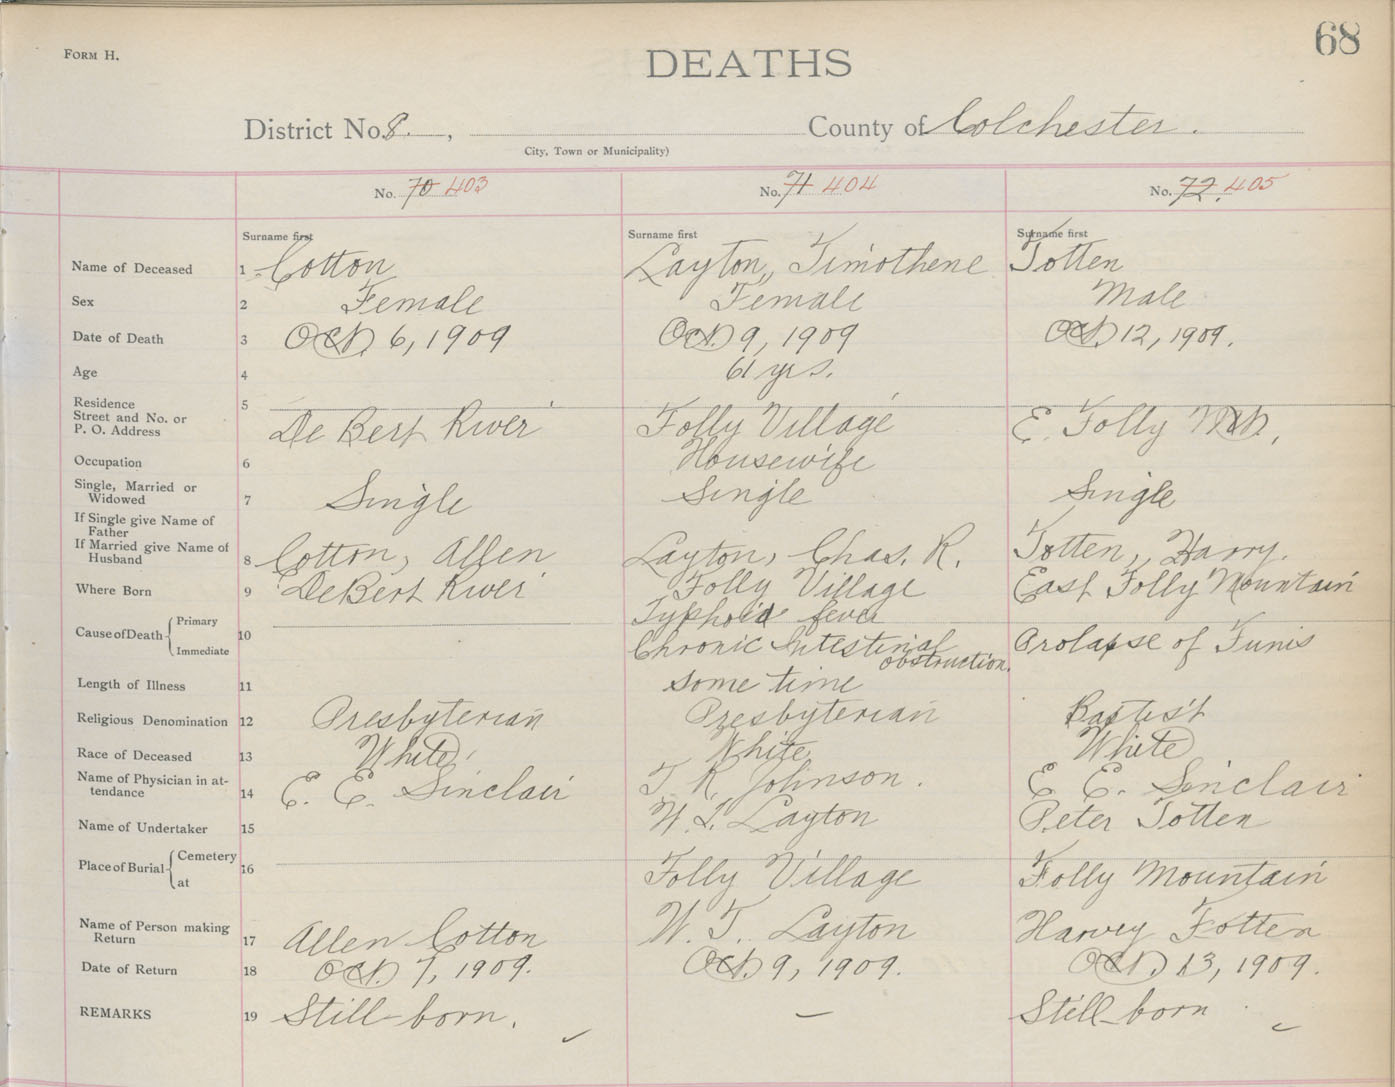 68
FORM H.
DEATHS
District No. 8. , County of Colchester.
City, Town or Municipality)
No. 70 403 No. 71 404 No. 72. 405
Surname first Surname first Surname first
Name of Deceased 1 Cotton Layton, Timothene Totten
Sex 2 Female Female Male
Date of Death 3 Oct. 6, 1909 Oct. 9, 1909 Oct. 12, 1909.
Age 4 61 yrs.
Residence
Street and No. or
P. O. Address 5 De Bert River Folly Village E. Folly Mtn,
Occupation 6 Housewife
Single, Married or
Widowed 7 Single Single Single
If Single give Name of
Father
If Married give Name of
Husband 8 Cotton, Allen Layton, Chas. R. Totten, Harry.
Where Born 9 DeBert River Folly Village East Folly Mountain
Cause of Death Primary Typhoid fever
Immediate 10 Chronic Intestinal obstruction. Prolapse of Funis
Length of Illness 11 some time
Religious Denomination 12 Presbyterian Presbyterian Baptist
Race of Deceased 13 White White White
Name of Physician in at-
tendance 14 E. E. Sinclair T. R. Johnson. E. E. Sinclair
Name of Undertaker 15 W. T. Layton Peter Totten
Place of Burial Cemetery
at 16 Folly Village Folly Mountain
Name of Person making
Return 17 Allen Cotton W. T. Layton Harvey Totten
Date of Return 18 Oct. 7, 1909. Oct. 9, 1909. Oct. 13, 1909.
REMARKS 19 Still-born. – Still-born